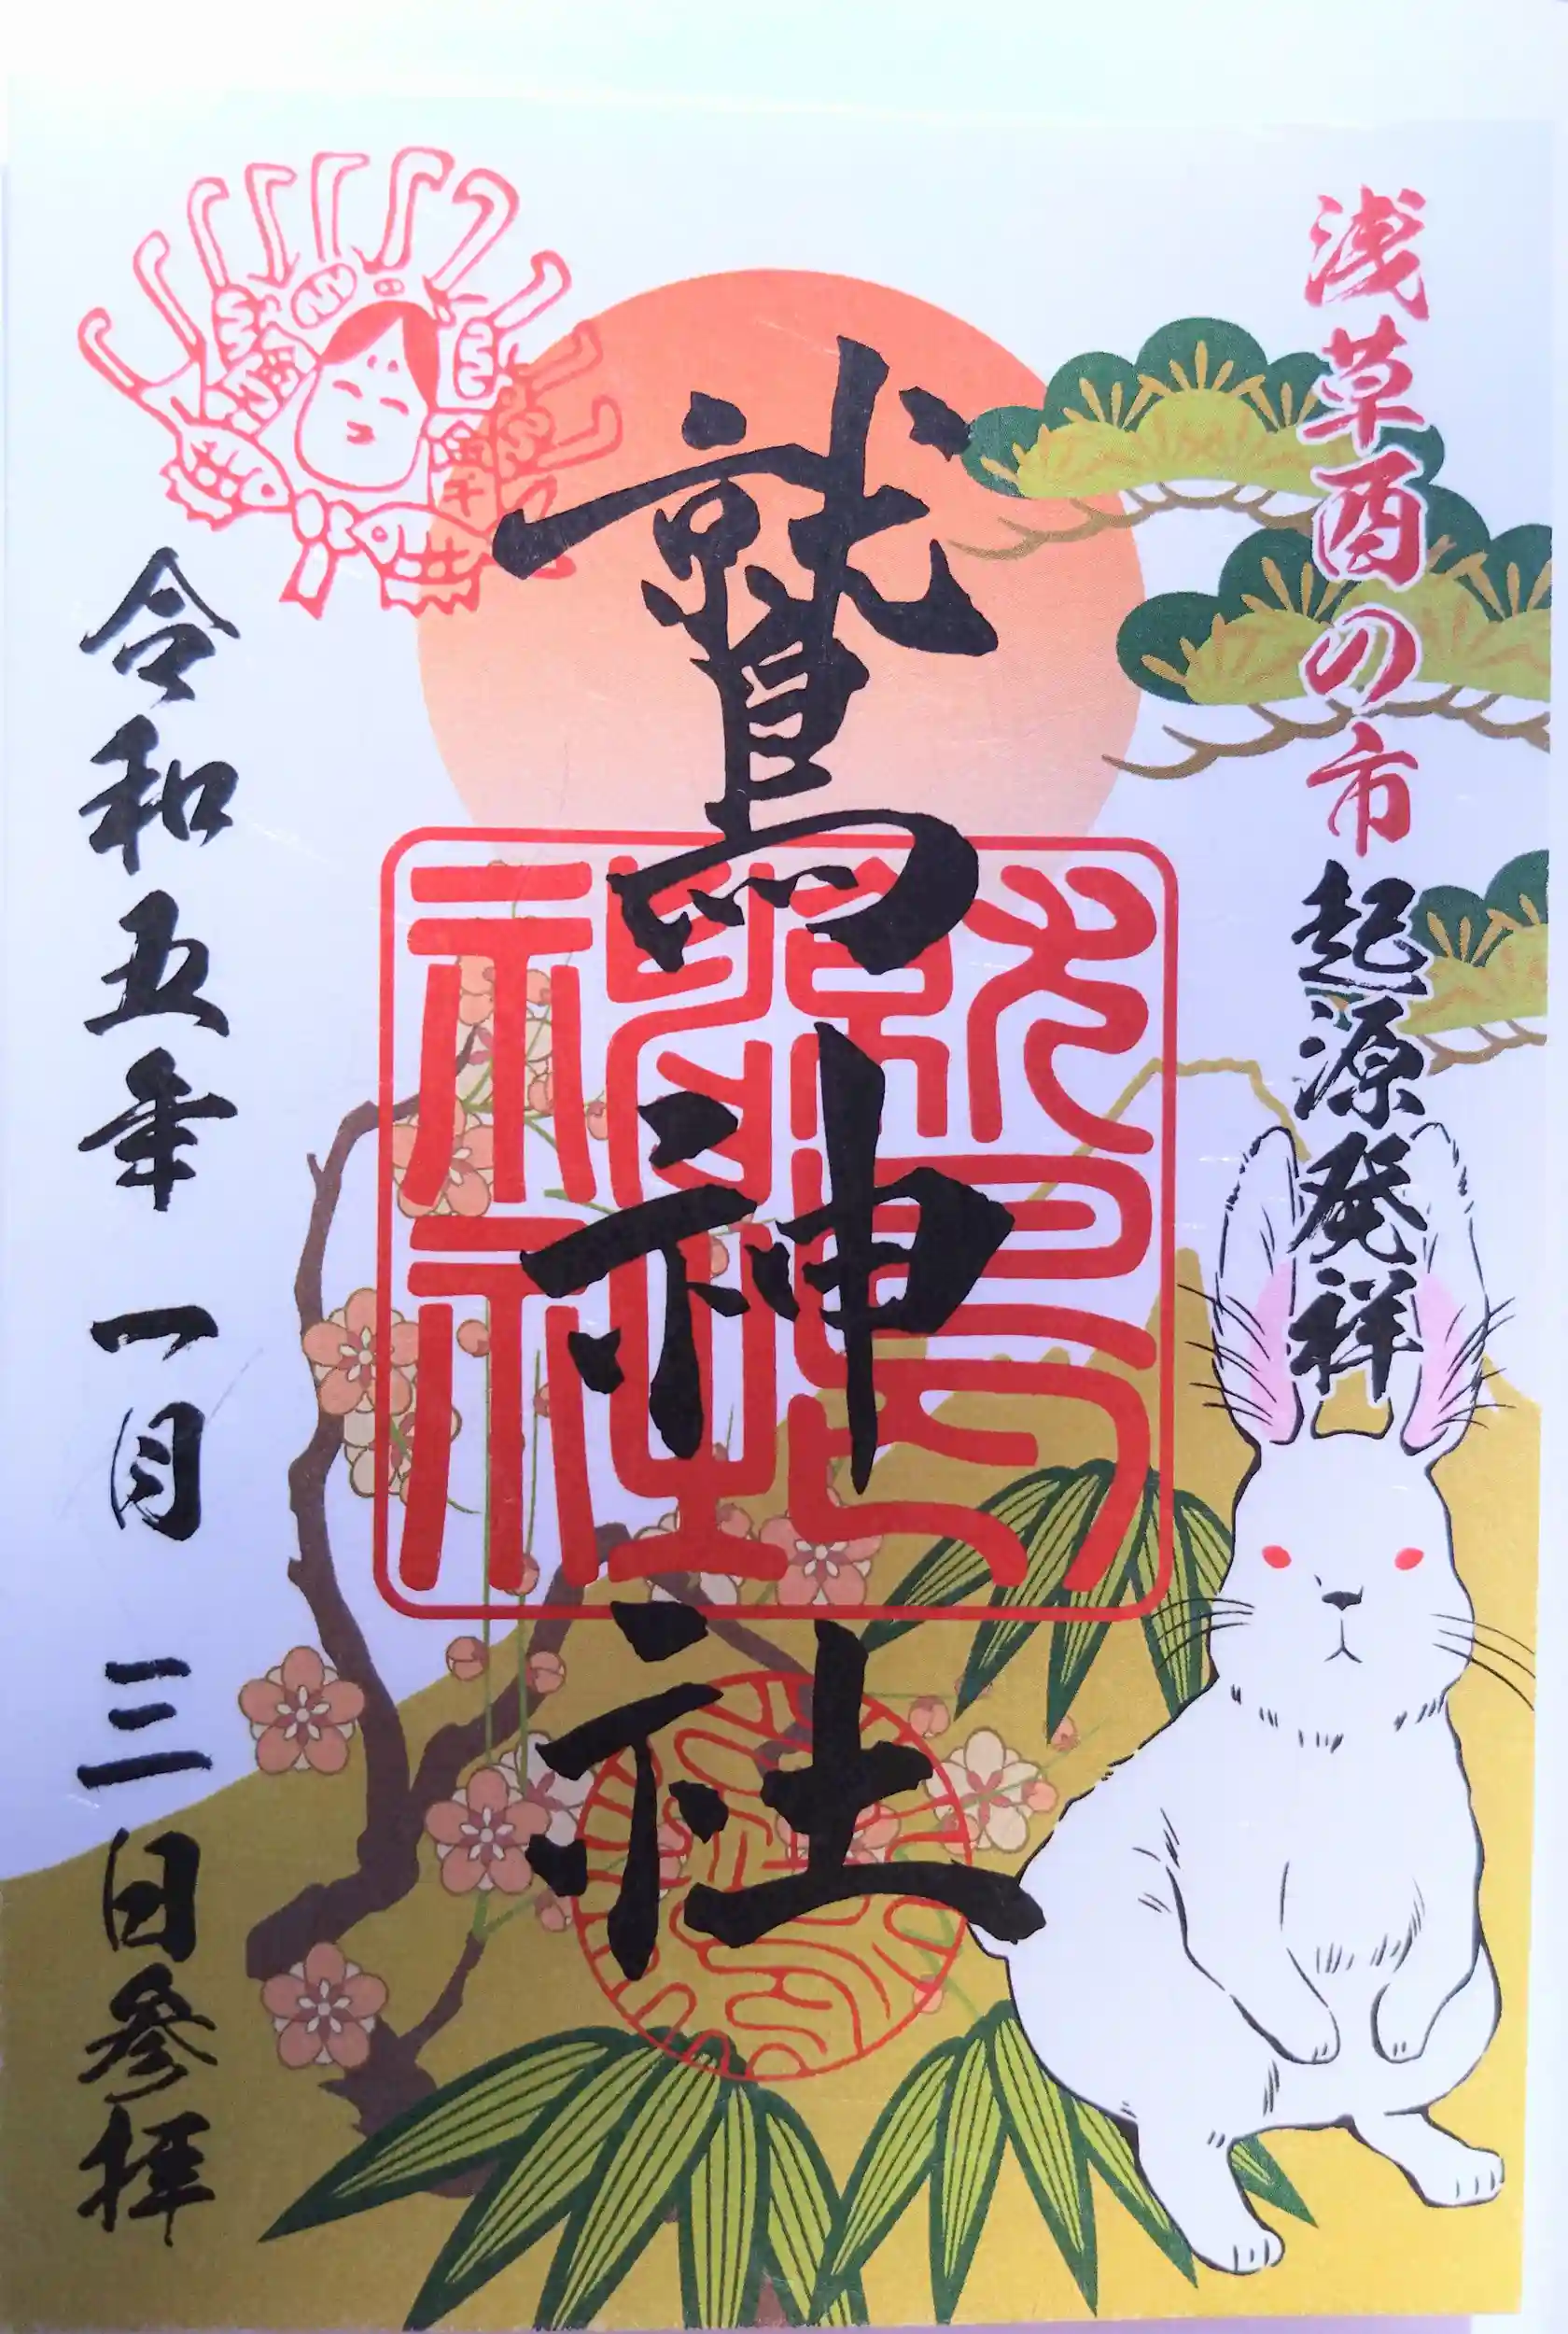 浅草酉の市起源発祥
鷲神社
鷲神社
令和五年 一月 三日参拝